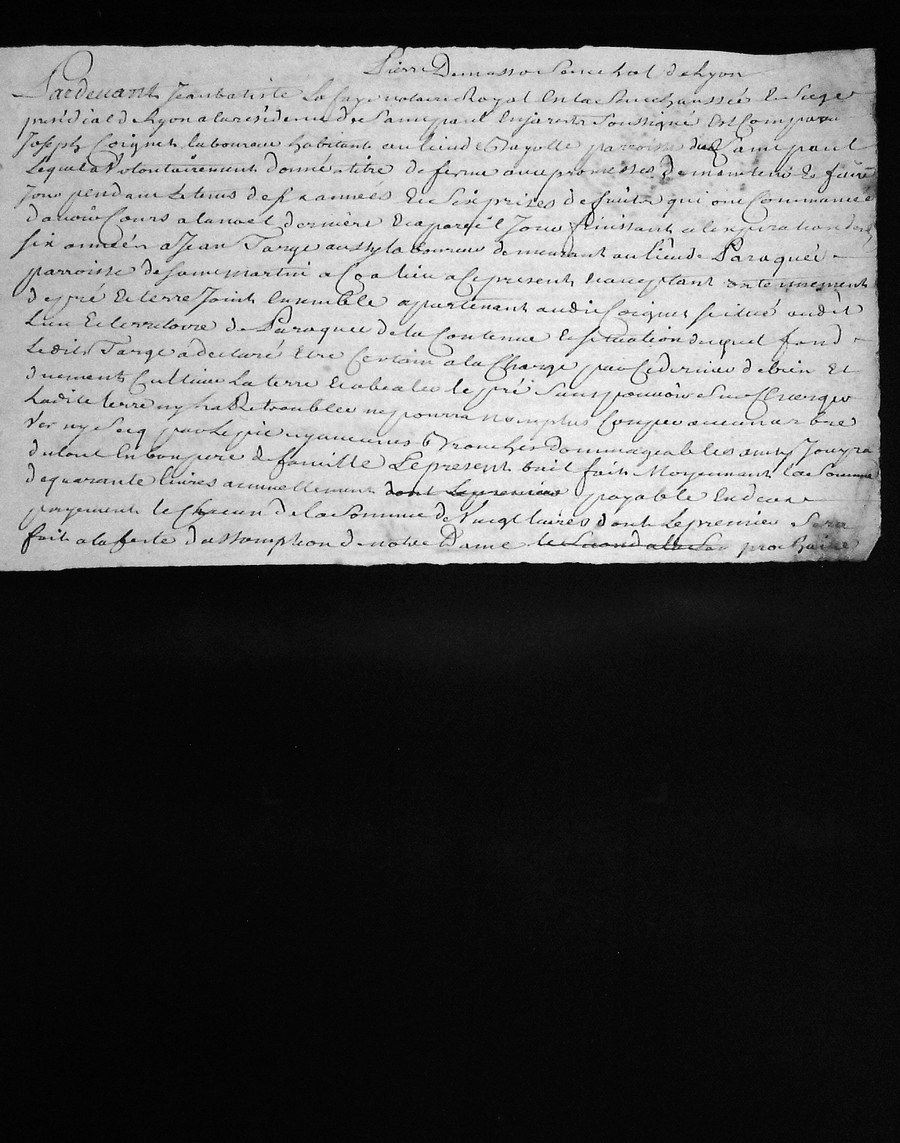 Pierre Demasso Senechal de Lyon
Pardevant Jean batiste Lafay notaire Royal En la Senechaussée Et Siege
presidial de Lyon a la residence de Saint paul En jarest Soussigné Est Comparu
Joseph Coignet laboureur habitant au lieu de parroisse dud Saint paul
Lequel a Volontairement donné a titre de ferme avec promesses de maintenir Et faire
Jouir pendant le tems de six années Et Six prises de fruits qui ont Commancé
d'avoir Cours a la noel derniere Et a pareil Jour finissant a l'expiration des
six années a Jean Targe aussy laboureur demeurant au lieu de Paraquée
parroisse de Saint martin a Coalieu a Ce present Et acceptant un tennement
de pré Et terre Joint Ensemble apartenant audit Coignet scitué audit
Lieu Et territoire de Paraquée de la Contenue Et situation duquel fond
Ledit Targe a declaré Etre Certain a la Charge par Ce dernier de bien Et
duement Cultiver La terre Et a bealer le pré Sans pouvoir Sur Charger
Ladite terre ny La Retroubler ne pourra non plus Couper aucun arbre
Ver ny Secq par le pié ny aucunes Branches Dommageables ains Jouyra
du tout En bon pere de famille Le present bail fait Moyennant la Somme
de quarante livres annuellement dont Le premier payable En deux
payements le Chacun de la Somme de Vingt livres dont Le premier Sera
fait a la feste d'assomption de notre Dame le Second a la prochaine